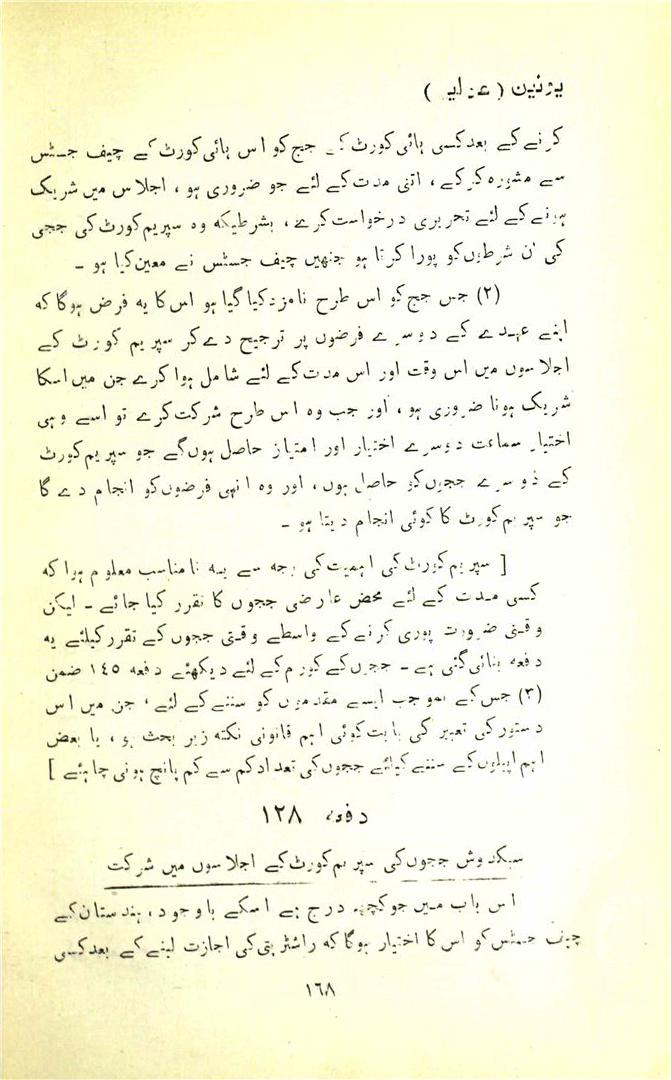 یونین (عدلیہ)
کرنے کے بعد کسی ہائی کورٹ کے جج کو اس ہائی کورٹ کے چیف جسٹس
سے مشورہ کرکے، اتنی مدت کے لئے جو ضروری ہو، اجلاس میں شریک
ہونے کے لئے تحریری درخواست کرے، بشرطیکہ وہ سپریم کورٹ کی ججی
کی ان شرطوں کو پورا کرتا ہو جنھیں چیف جسٹس نے معین کیا ہو ۔
(۲) جس جج کو اس طرح نامزد کیا گیا ہو اس کا یہ فرض ہوگا کہ
اپنے عہدے کے دوسرے فرضوں پر ترجیح دے کر سپریم کورٹ کے
اجلاسوں میں اس وقت اور اس مدت کے لئے شامل ہوا کرے جن میں اسکا
شریک ہونا ضروری ہو، اور جب وہ اس طرح شرکت کرے تو اسے وہی
اختیار سماعت دوسرے اختیار اور امتیاز حاصل ہوں گے جو سپریم کورٹ
کے دوسرے ججوں کو حاصل ہوں، اور وہ انہی فرضوں کو انجام دے گا
جو سپریم کورٹ کا کوئی انجام دیتا ہو ۔
[ سپریم کورٹ کی اہمیت کی وجہ سے یہ نامناسب معلوم ہوا کہ
کسی مدت کے لئے محض عارضی ججوں کا تقرر کیا جائے ۔ لیکن
وقتی ضرورت پوری کرنے کے واسطے وقتی ججوں کے تقرر کیلئے یہ
دفعہ بنائی گئی ہے ۔ ججوں کے کورم کے لئے دیکھئے دفعہ ۱٤٥ ضمن
(۳) جس کے بموجب ایسے مقدموں کو سننے کے لئے، جن میں اس
دستور کی تعبیر کی بابت کوئی اہم قانونی نکتہ زیر بحث ہو، یا بعض
اہم اپیلوں کے سننے کیلئے ججوں کی تعداد کم سے کم پانچ ہونی چاہئے ]
دفعہ ۱۲۸
سبکدوش ججوں کی سپریم کورٹ کے اجلاسوں میں شرکت
اس باب میں جو کچھ درج ہے اسکے باوجود، ہندستان کے
چیف جسٹس کو اس کا اختیار ہوگا کہ راشٹرپتی کی اجازت لینے کے بعد کسی
۱٦۸